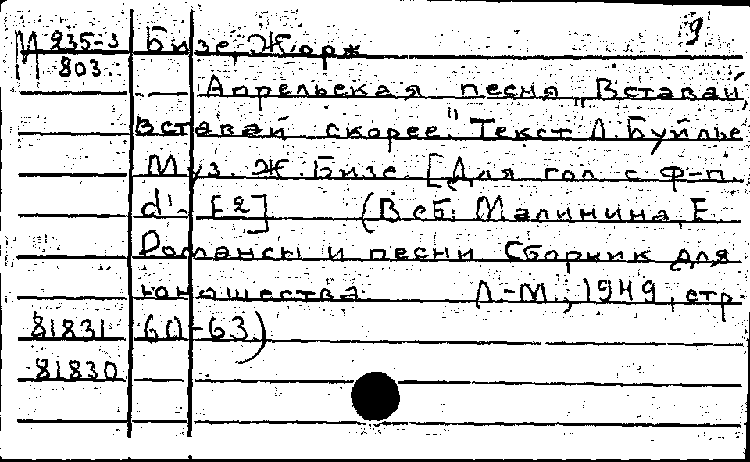 9
М 235-3 Бизе, Жорж
803
Апрельская песня „Вставай,
вставай скорее". Текст Л. Буйлье
Муз. Ж. Бизе [Для гол. с ф-п.
d'- [g2] (В сб: Малинина, Е.
Романсы и песни Сборник для
юношества. Л.-М., 1949, стр.
81831 60-63)
81830